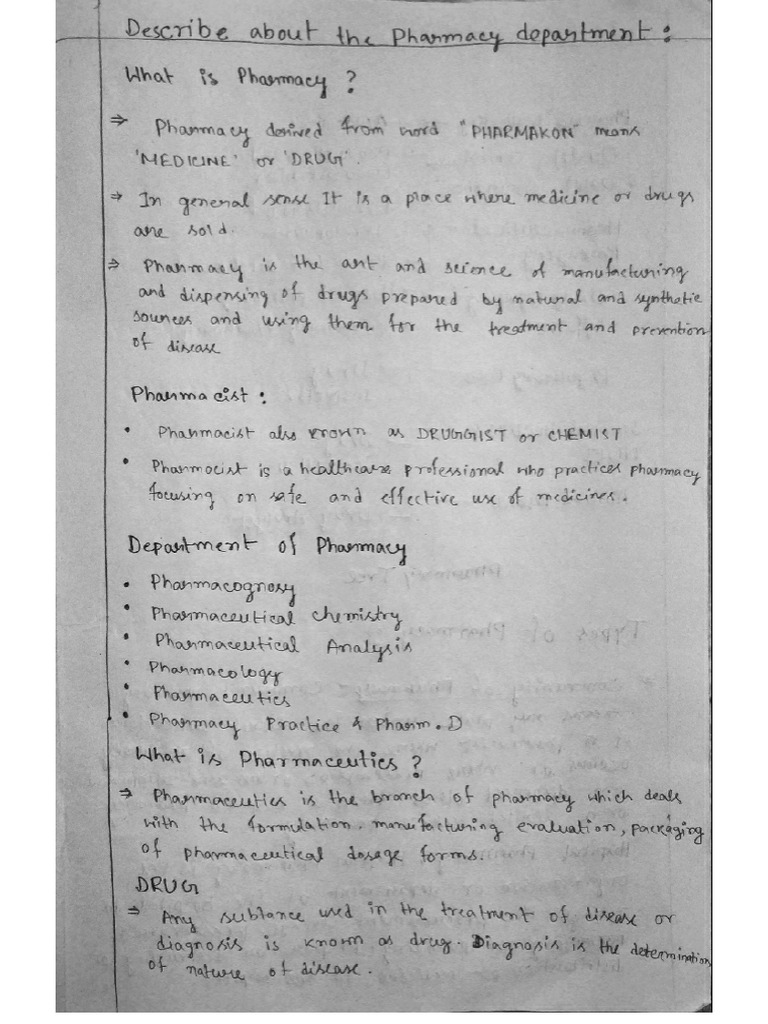 Describe about the Pharmacy department :
What is Pharmacy ?
⇒ Pharmacy derived from word "PHARMAKON" means
'MEDICINE' or 'DRUG'.
⇒ In general sense It is a place where medicine or drugs
are sold.
⇒ Pharmacy is the art and science of manufacturing
and dispensing of drugs prepared by natural and synthetic
sources and using them for the treatment and prevention
of disease
Pharmacist :
• Pharmacist also known as DRUGGIST or CHEMIST
• Pharmacist is a healthcare professional who practices pharmacy
focusing on safe and effective use of medicines.
Department of Pharmacy
• Pharmacognosy
• Pharmaceutical Chemistry
• Pharmaceutical Analysis
• Pharmacology
• Pharmaceutics
• Pharmacy Practice & Pharm.D
What is Pharmaceutics ?
⇒ Pharmaceutics is the branch of pharmacy which deals
with the formulation. manufacturing evaluation, packaging
of pharmaceutical dosage forms.
DRUG
⇒ Any subtance used in the treatment of disease or
diagnosis is known as drug. Diagnosis is the determination
of nature of disease.